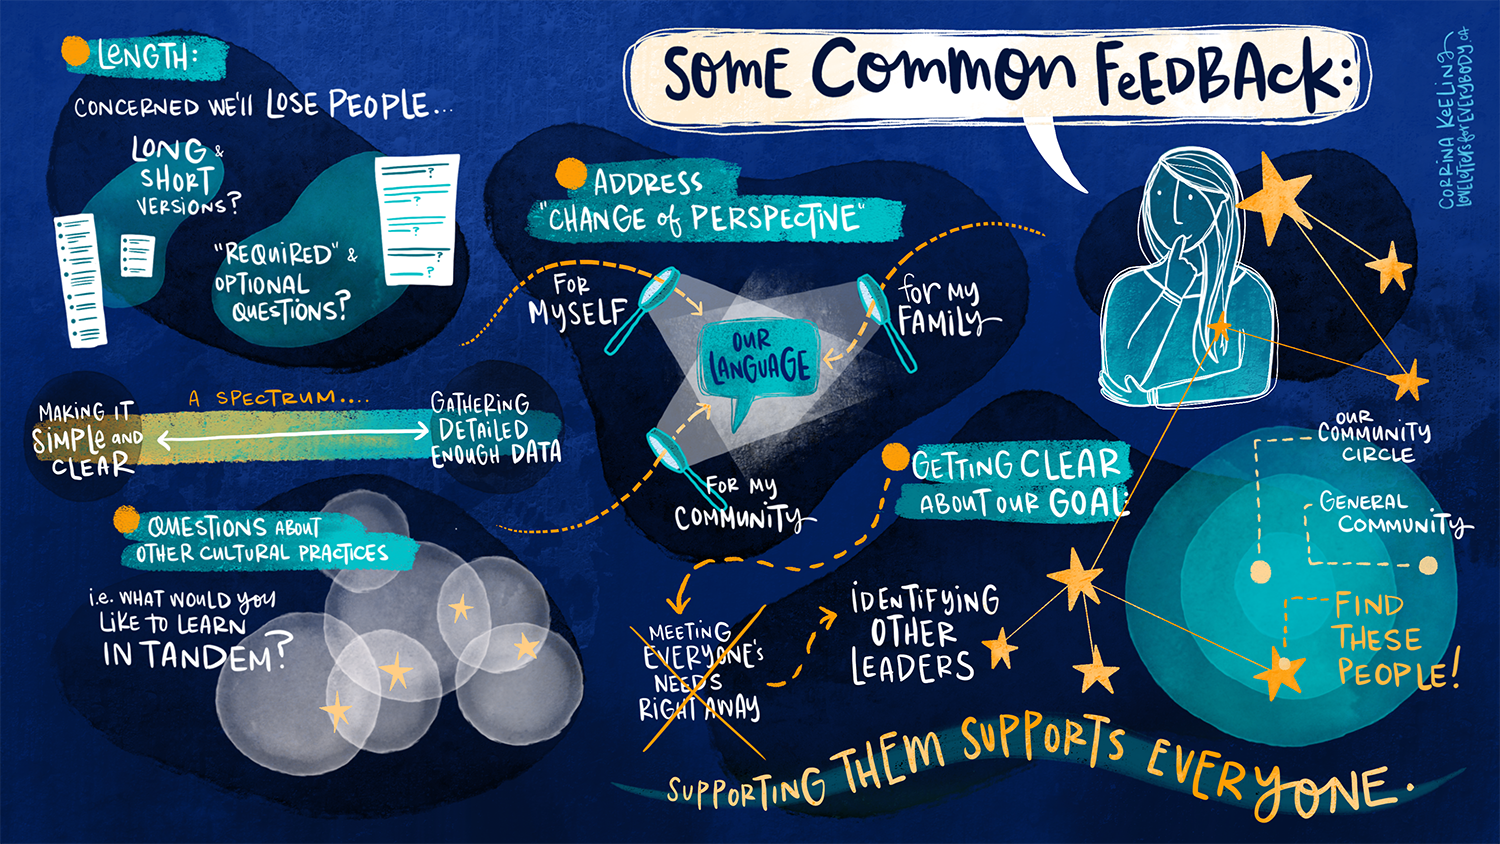 SOME COMMON FEEDBACK:
CORRINA KEELING
LOVELETTERS for EVERYBODY.CA
LENGTH:
CONCERNED WE'LL LOSE PEOPLE...
LONG &
SHORT
VERSIONS?
"REQUIRED" &
OPTIONAL
QUESTIONS?
?
?
?
?
A SPECTRUM....
MAKING IT
SIMPLE AND
CLEAR
GATHERING
DETAILED
ENOUGH DATA
QUESTIONS ABOUT
OTHER CULTURAL PRACTICES
i.e. WHAT WOULD you
LIKE TO LEARN
IN TANDEM?
ADDRESS
"CHANGE of PERSPECTIVE"
FOR
MYSELF
for MY
FAMILY
OUR
LANGUAGE
FOR MY
COMMUNITY
GETTING CLEAR
ABOUT OUR GOAL:
MEETING
EVERYONE'S
NEEDS
RIGHT AWAY
IDENTIFYING
OTHER
LEADERS
OUR
COMMUNITY
CIRCLE
GENERAL
COMMUNITY
FIND
THESE
PEOPLE!
SUPPORTING THEM SUPPORTS EVERYONE.